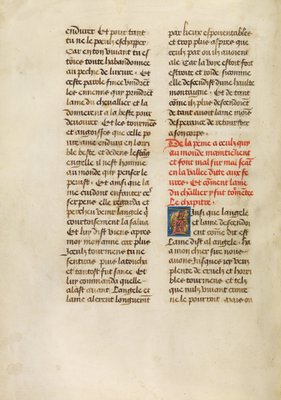 endurer Et pour tant
tu ne le poeulx eschapper
Car en ton viuant tu es
toies toute habandonnee
au pechie de luxure . Et
ceste parole finee vindrent
les ennemis qui prindrent
lame du cheuallier et la
donnerent a la beste pour
deuourer Et les tourmens
et angoisses que celle po
ure ame endura en lorri
ble
il nest homme
au monde qui penser le
peuist . Et ainsi que la
me cuidoit enforcer ces
ser pens elle regarda et
percheu venir langele q̃
courtoisement la salua
Et luy dist viens apres
moy mon amie car plus
Jceulx tourmens tu ne
sentiras puis la toucha
et tantost fut sanee Et
luy commanda quelle
alast auant Langele et
lame alerent longuement
par lieux espouentables
et trop plus aspres que
ceulx par ou ilz auoient
ale Car la voye estoit fort
estroite et roide si comme
elle descendist dune haulte
montaigne . Et de tant
côme ilz plus descendoient
de tant auoit lame moins
desperance de retourner
a son corps .
De la peine a ceulx qui
au monde mainteinent
et font mal sur mal sont
en la vallee dicte aux fe
ures . Et cõment lame
du cheƚƚier y fut tourmẽtee
Le chapitre .
Ainsi que langele
et lame descendi
rent comme dit est
Lame dist al angele . ha
a mon chier sire nous
auons Jusques icy veu
plente de crueulx et horri
bles tourmens et telz
que nulz viuant comte
ne le pourroit auons ou